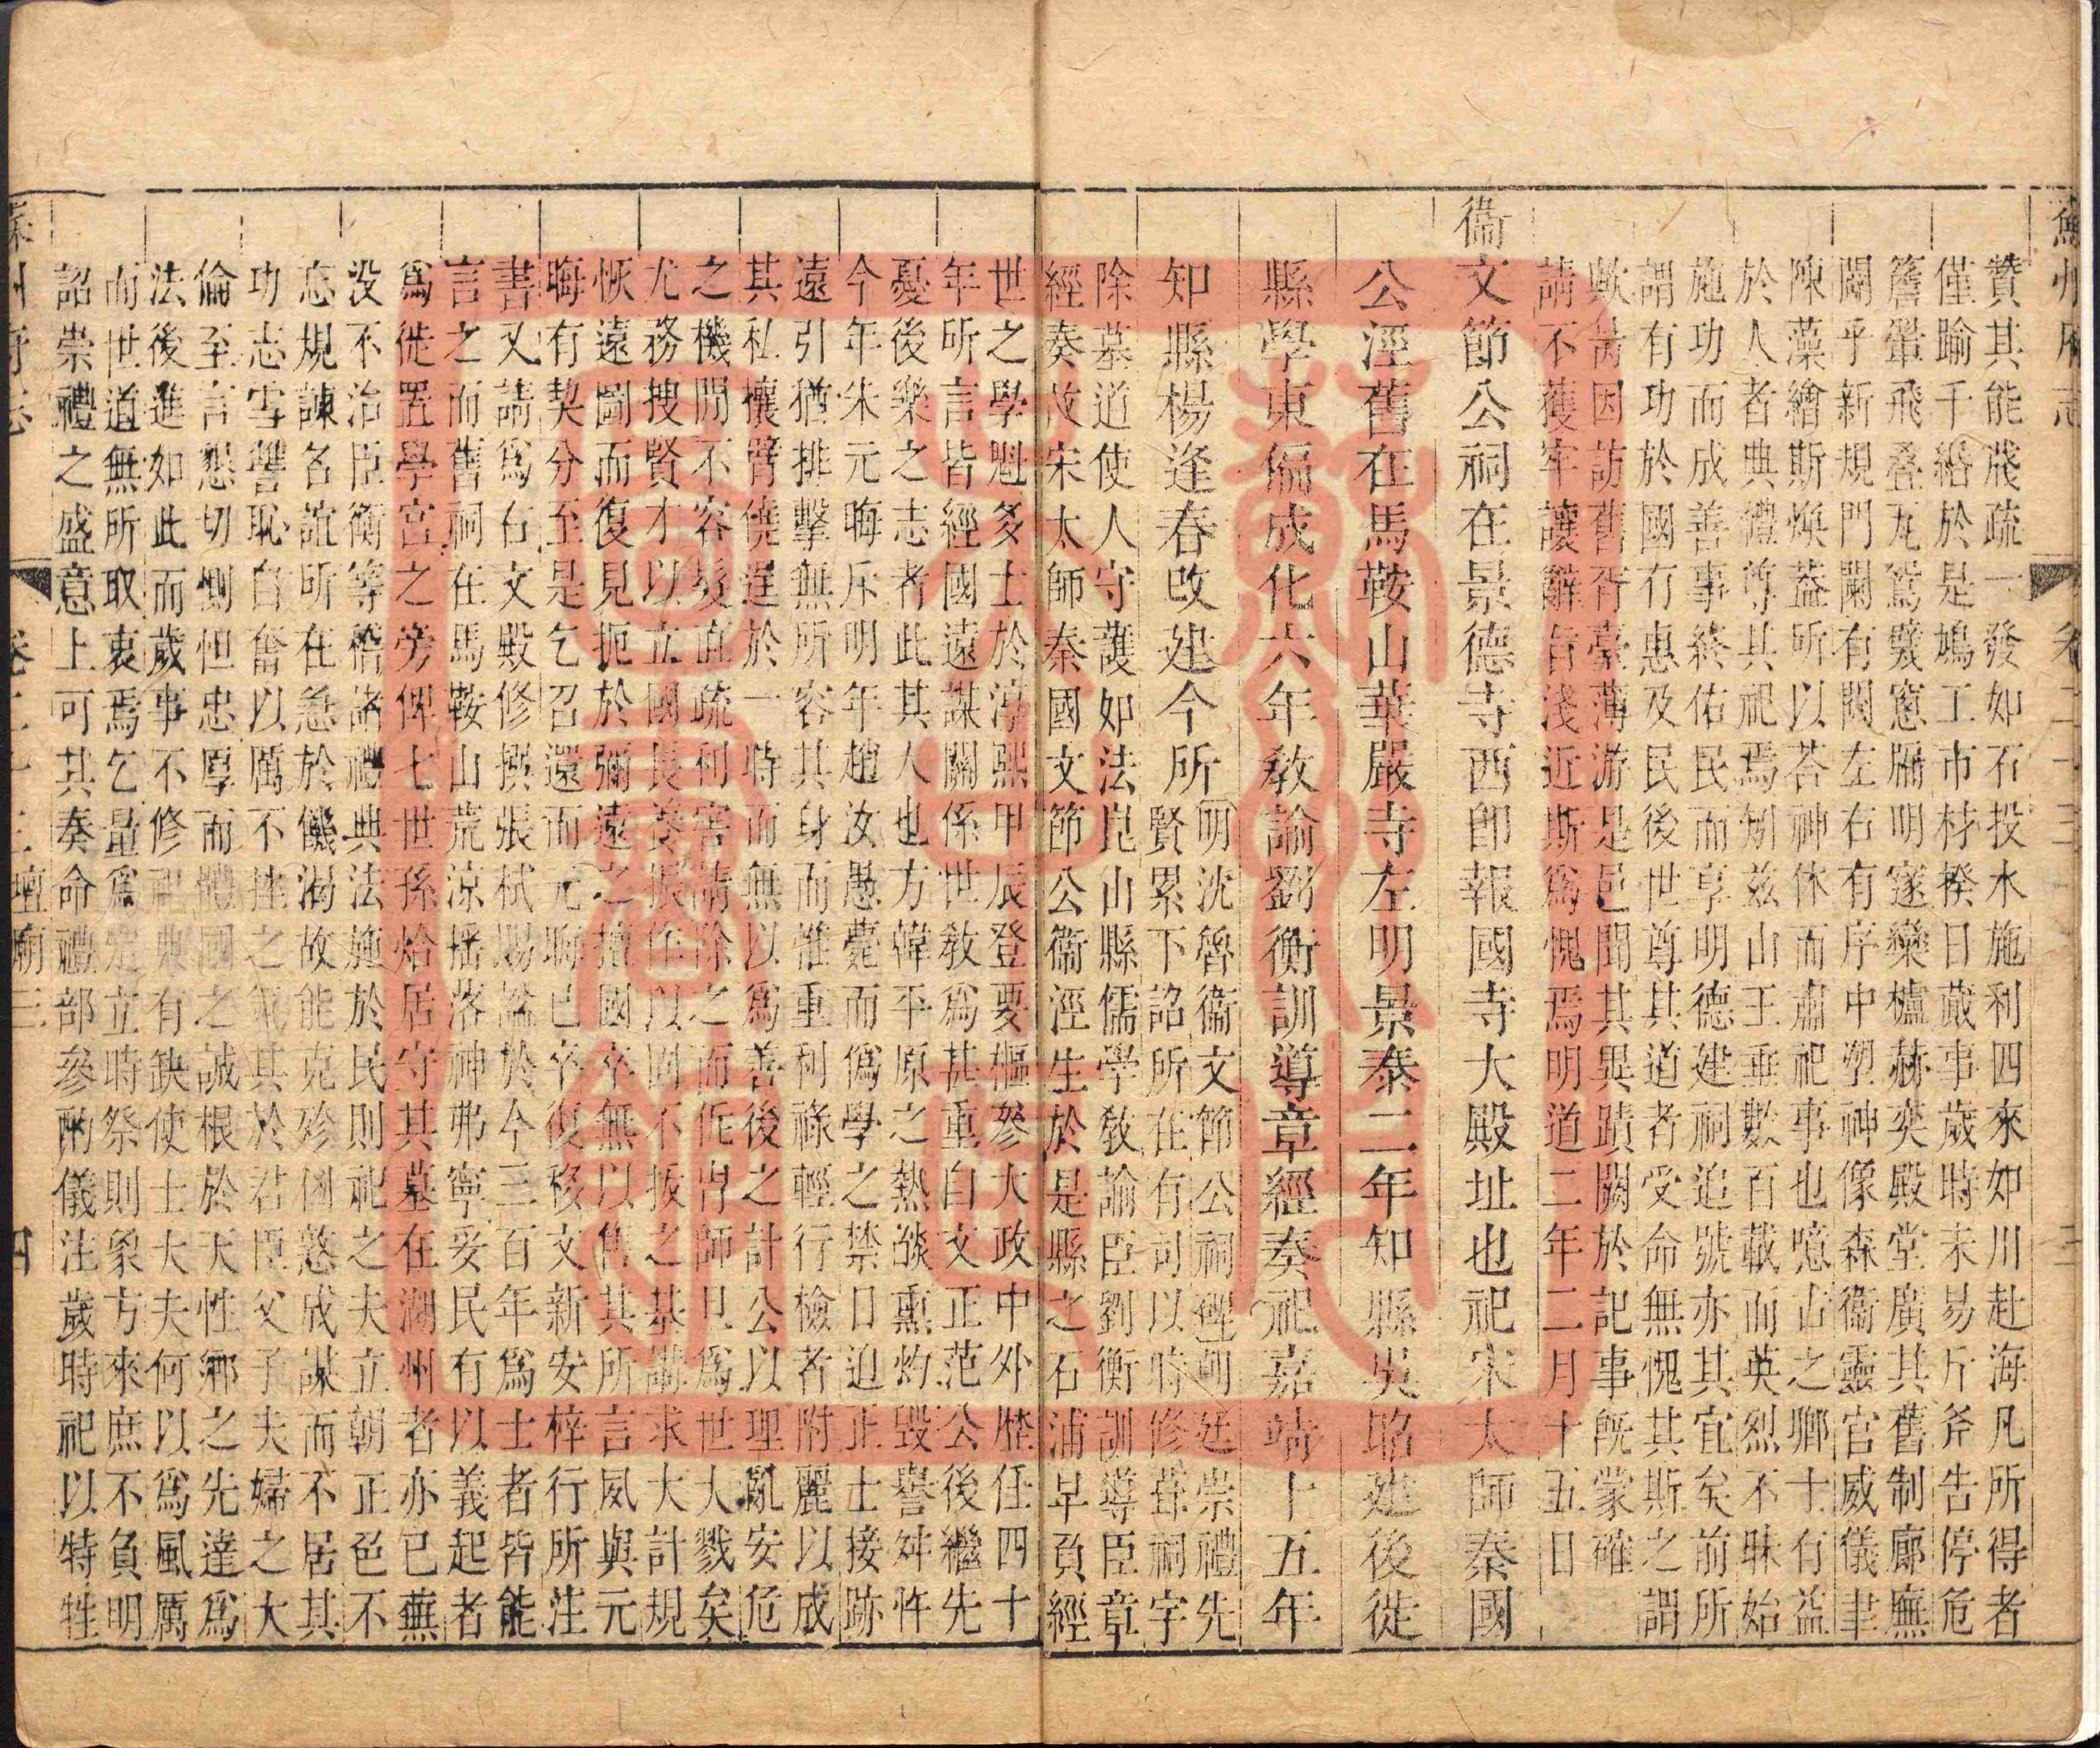 贊其能牋疏一發如石投水施利四來如川赴海凡所得者
僅踰千緡於是鳩工市材揆日蕆事歲時未易斤斧告停危
簷翬飛叠瓦鴛甃窻牖明邃欒櫨赫奕殿堂廣其舊制廊廡
闢乎新規門闌有閌左右有序中塑神像森衞靈官威儀聿
陳藻繪斯煥葢所以荅神休而肅祀事也噫古之鄉士有益
於人者典禮尊其祀焉矧兹山王垂數百載而英烈不昧始
施功而成善事終佑民而享明德建祠追號亦其宜矣前所
謂有功於國有惠及民後世尊其道者受命無愧其斯之謂
歟耑因訪舊胥臺薄游是邑聞其異蹟闕於記事旣蒙確
請不獲牢讓辭旨淺近斯爲愧焉明道二年二月十五日
衞文節公祠在景德寺西卽報國寺大殿址也祀宋太師秦國
公涇舊在馬鞍山華嚴寺左明景泰二年知縣吳昭建後徙
縣學東偏成化六年敎諭劉衡訓導章經奏祀嘉靖十五年
知縣楊逢春改建今所
明沈魯衞文節公祠 朝廷崇禮先
賢累下詔所在有司以時修葺祠宇
除墓道使人守護如法崑山縣儒學敎諭臣劉衡訓導臣章
經奏故宋太師秦國文節公衞涇生於是縣之石浦早負經
世之學魁多士於淳熙甲辰登要樞參大政中外歷任四十
年所言皆經國遠謀關係世敎爲甚重自文正范公後繼先
憂後樂之志者此其人也方韓平原之熱燄熏灼毀譽舛忤
今年朱元晦斥明年趙汝愚薨而僞學之禁日迫正士接跡
遠引猶排擊無所容其身而惟重利祿輕行檢者附麗以成
其私攘臂僥逞於一時而無以爲善後之計公以理亂安危
之機閒不容髮直疏利害請除之而侂冑師旦爲世大戮矣
尤務搜賢才以立國長養振作以固不拔之基講求大計規
恢遠圖而復見扼於彌遠之擅國卒無以售其所言威與元
晦有契分至是乞召還而元晦已卒復移文新安梓行所注
書又請爲右文殿修撰張栻賜謚於今三百年爲士者皆能
言之而舊祠在馬鞍山荒涼搖落神弗寧妥民有以義起者
爲徙置學宮之旁俾七世孫焓居守其墓在湖州者亦已蕪
没不治臣衡等稽諸禮典法施於民則祀之夫立朝正色不
忘規諫名誼所在急於儀渴故能克殄凶慝成謀而不居其
功志雪讐恥自奮以厲不挫之氣其於君臣父子夫婦之大
倫至言懇切惻怛忠厚而體國之誠根於天性鄉之先達爲
法後進如此而歲事不修祀典有缺使士大夫何以爲風厲
而世道無所取衷焉乞量爲定立時祭則象方來庶不負明
詔崇禮之盛意上可其奏命禮部參酌儀注歲時祀以特牲
蘇州府志 卷二十三 壇廟三 四